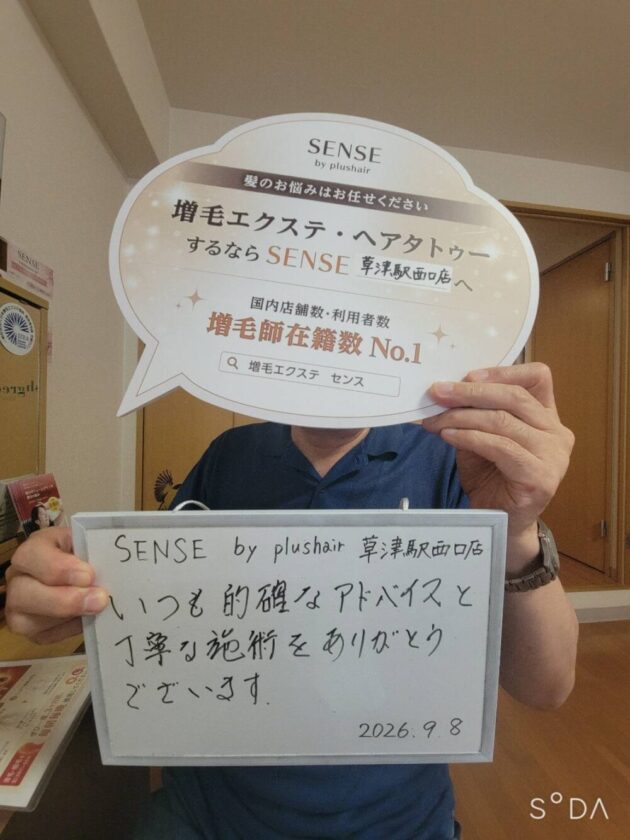 SENSE
by plushair
髪のお悩みはお任せください
増毛エクステ・ヘアタトゥー
するなら SENSE 草津駅西口店 へ
国内店舗数・利用者数
増毛師在籍数 No.1
増毛エクステ センス
SENSE by plushair 草津駅西口店
いつも的確なアドバイスと
丁寧な施術をありがとう
ございます.
2026.9.8
SENSE
SODA